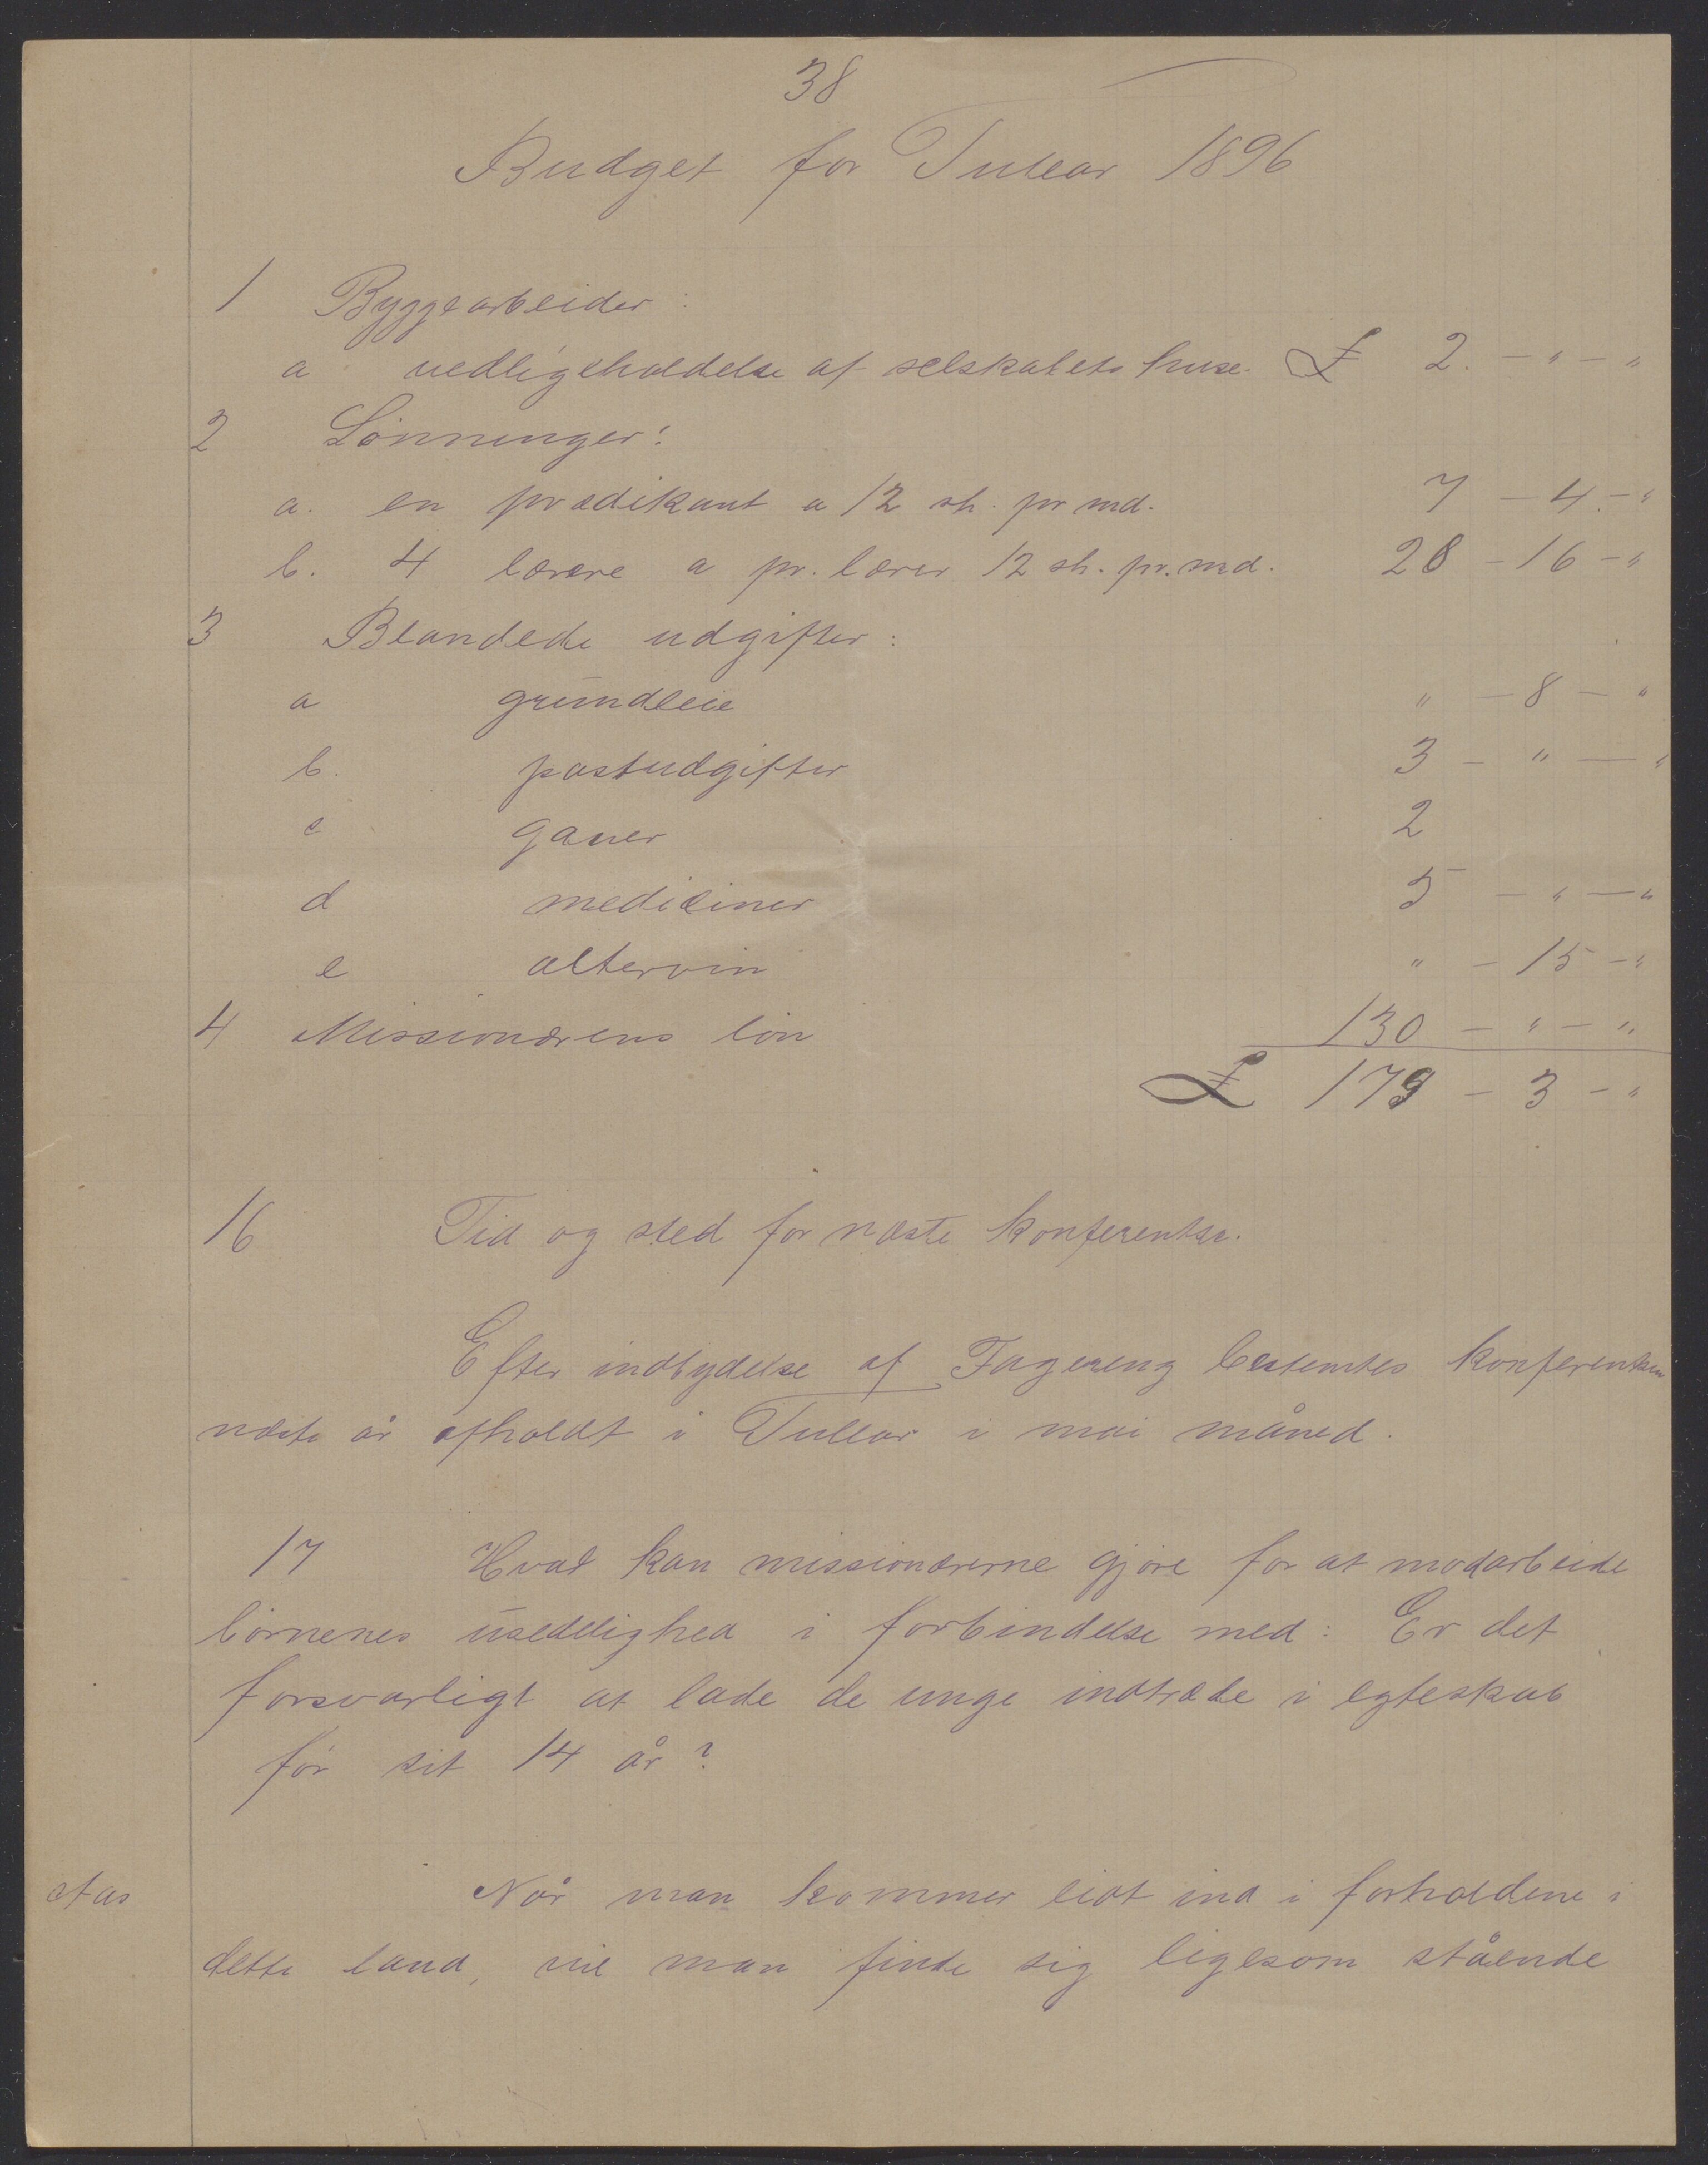 38
Budget for Tulear 1896
1 Byggearbeider:
a vedligeholdelse af selskabets huse. £ 2. - " - "
2 Lønninger:
a. en prædikant a 12 sh. pr md. 7 - 4 - "
b. 4 lærere a pr. lærer 12 sh. pr. md. 28 - 16 - "
3 Blandede udgifter:
a grundleie " - 8 - "
b. postudgifter 3 - " - "
c gaver 2
d mediciner 5 - " - "
e altervin " - 15 - "
4 Missionærens løn 130 - " - "
£ 179 - 3 - "
16 Tid og sted for næste konferentse.
Efter indbydelse af Fagereng bestemtes konferentsen
næste år afholdt i Tullear i mai måned.
17 Hvad kan missionærerne gjøre for at modarbeide
børnenes usedelighed i forbindelse med: Er det
forsvarligt at lade de unge indtræde i egteskab
før sit 14 år?
Aas Når man kommer lidt ind i forholdene i
dette land, vil man finde sig ligesom stående